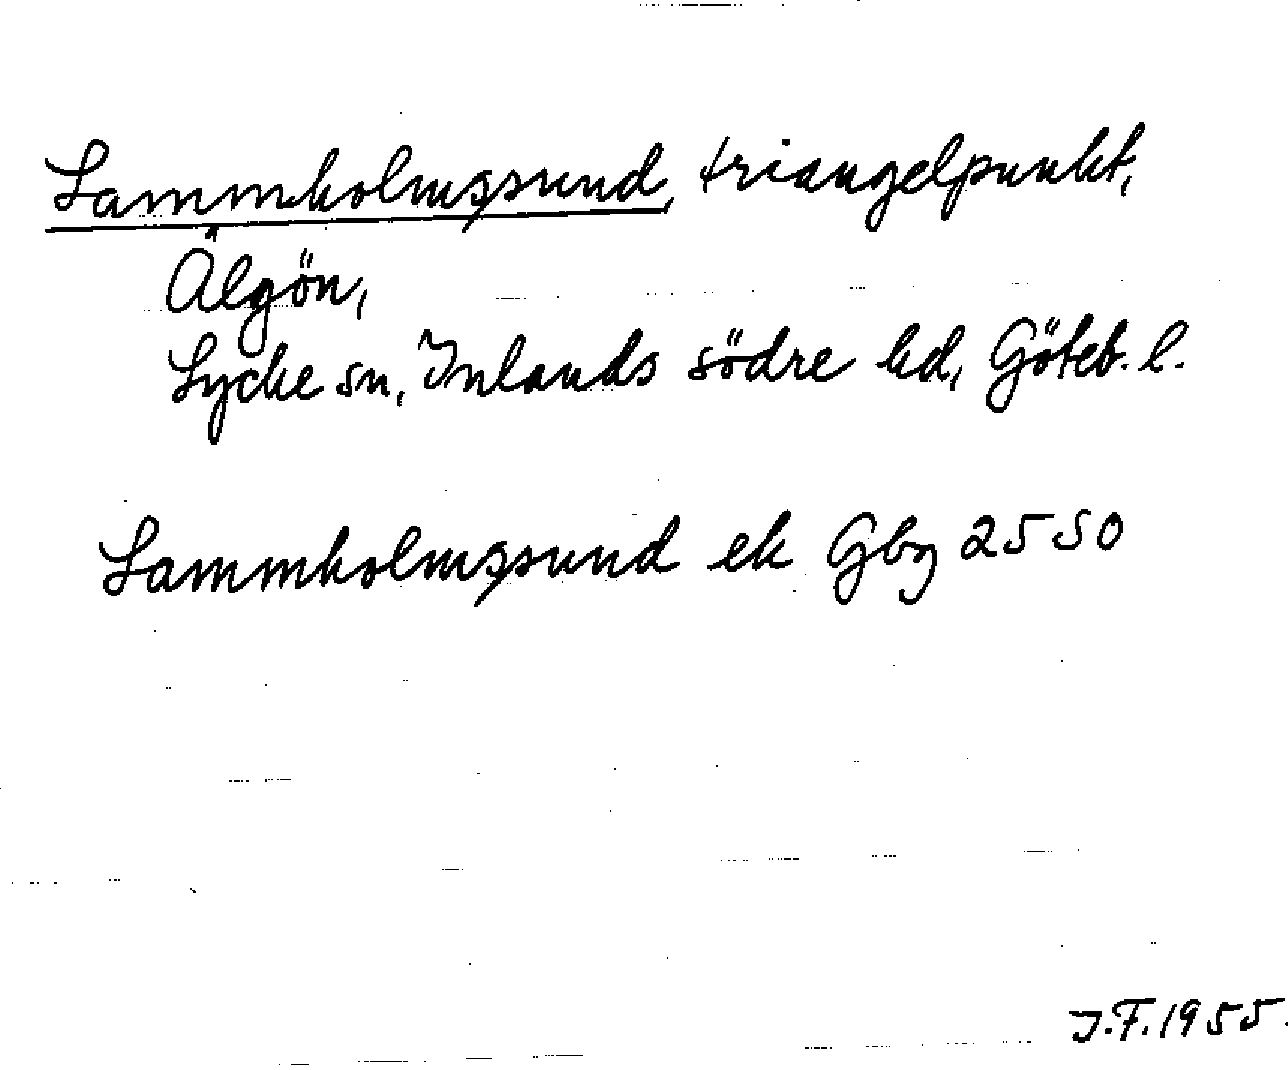 Lammholmssund, triangelpunkt,
Älgön,
Lycke sn, Inlands södre hd, Göteb. l.
Lammholmssund ek Gbg 2550
J.F. 1955.